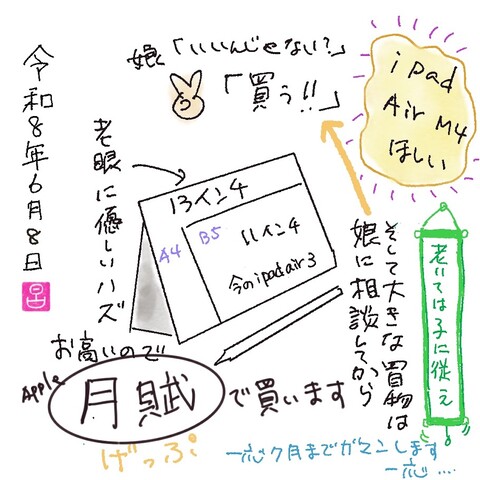 令和8年6月8日
昌
娘「いいんじゃない?」
「買う!!」
iPad
Air M4
ほしい
老眼に優しいハズ
13インチ
A4
B5
11インチ
今のipad air3
そして大きな買物は
娘に相談してから
老いては子に従え
お高いので
Apple
月賦
で買います
げっぷ
一応ク月までガマンします
一応....